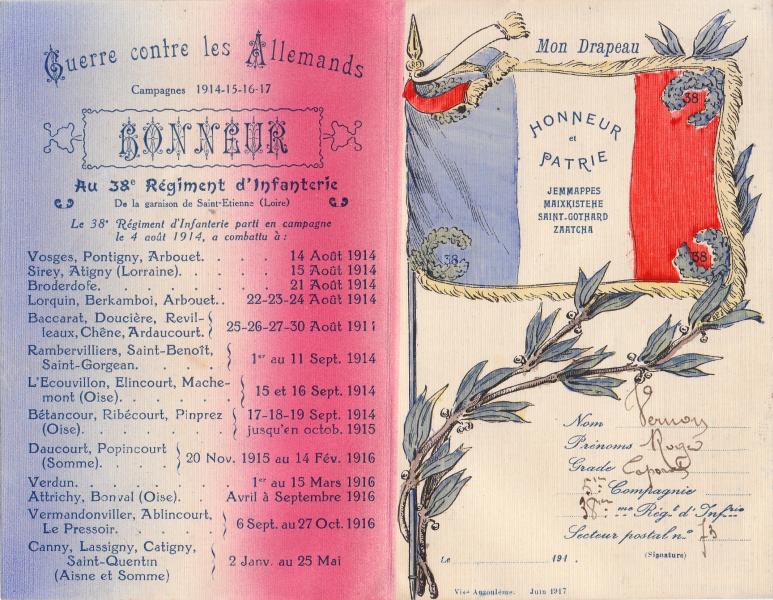 Guerre contre les Allemands
Campagnes 1914-15-16-17
HONNEUR
Au 38e Régiment d'Infanterie
De la garnison de Saint-Etienne (Loire)
Le 38e Régiment d'Infanterie parti en campagne
le 4 août 1914, a combattu à :
Vosges, Pontigny, Arbouet. . . . . 14 Août 1914
Sirey, Atigny (Lorraine). . . . 15 Août 1914
Broderdofe. . . . . . 21 Août 1914
Lorquin, Berkamboi, Arbouet. . 22-23-24 Août 1914
Baccarat, Doucière, Revil-
leaux, Chêne, Ardaucourt. } 25-26-27-30 Août 1911
Rambervilliers, Saint-Benoît,
Saint-Gorgean. . . . . } 1er au 11 Sept. 1914
L'Ecouvillon, Elincourt, Mache-
mont (Oise). . . . . } 15 et 16 Sept. 1914
Bétancour, Ribécourt, Pinprez } 17-18-19 Sept. 1914
(Oise). . . . . . jusqu'en octob. 1915
Daucourt, Popincourt
(Somme). . . . . } 20 Nov. 1915 au 14 Fév. 1916
Verdun. . . . . . 1er au 15 Mars 1916
Attrichy, Bonval (Oise). . Avril à Septembre 1916
Vermandonviller, Ablincourt,
Le Pressoir. . . . . } 6 Sept. au 27 Oct. 1916
Canny, Lassigny, Catigny,
Saint-Quentin
(Aisne et Somme) } 2 Janv. au 25 Mai
Mon Drapeau
38
HONNEUR
et
PATRIE
JEMMAPPES
MAIXKISTEHE
SAINT-GOTHARD
ZAATCHA
38
38
Nom Vernon
Prénoms Roger
Grade Caporal
5me Compagnie
38me me Régt d'Infrie
Secteur postal no 73
Le 191 .
(Signature)
Visé Angoulême. Juin 1917